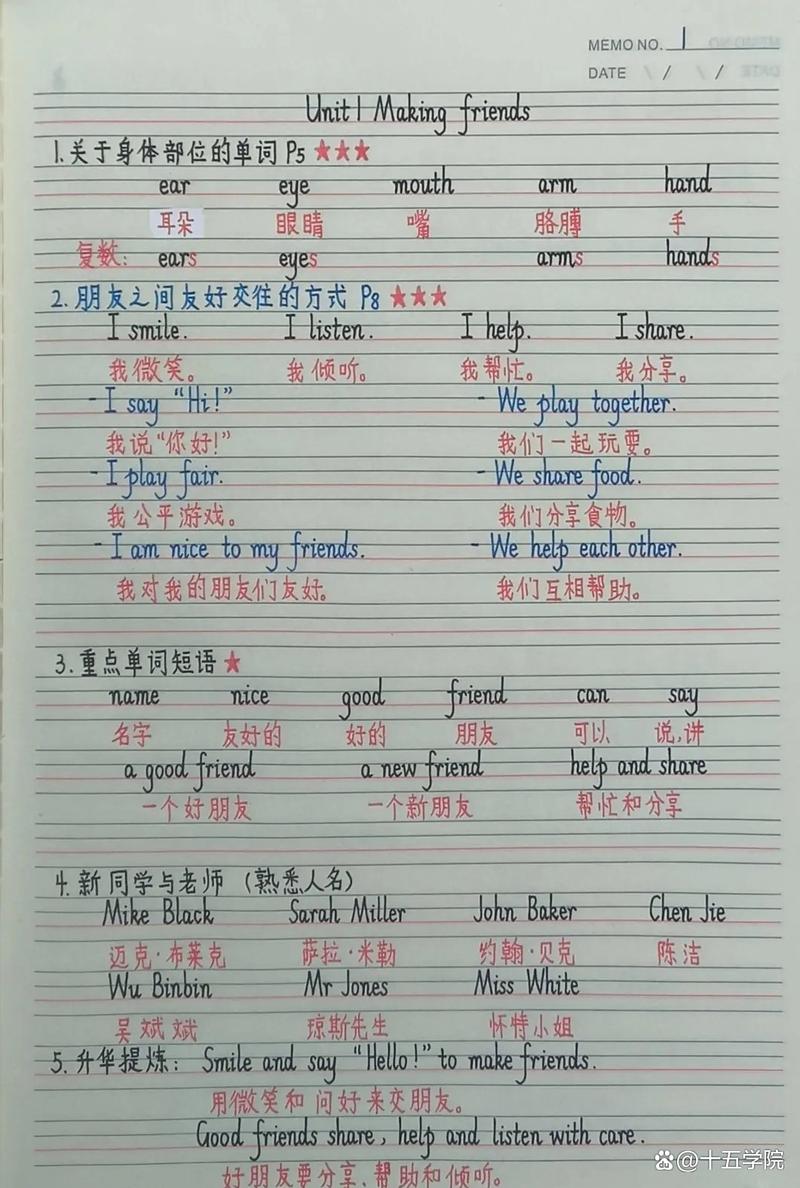 MEMO NO. 1
DATE / /
Unit 1 Making friends
1.关于身体部位的单词 P5 ★★★
ear eye mouth arm hand
耳朵 眼睛 嘴 胳膊 手
复数: ears eyes arms hands
2.朋友之间友好交往的方式 P8 ★★★
I smile. I listen. I help. I share.
我微笑。 我倾听。 我帮忙。 我分享。
- I say “Hi!” - We play together.
我说“你好!” 我们一起玩耍。
- I play fair. - We share food.
我公平游戏。 我们分享食物。
- I am nice to my friends. - We help each other.
我对我的朋友们友好。 我们互相帮助。
3.重点单词短语 ★
name nice good friend can say
名字 友好的 好的 朋友 可以 说,讲
a good friend a new friend help and share
一个好朋友 一个新朋友 帮忙和分享
4.新同学与老师 (熟悉人名)
Mike Black Sarah Miller John Baker Chen Jie
迈克·布莱克 萨拉·米勒 约翰·贝克 陈洁
Wu Binbin Mr Jones Miss White
吴斌斌 琼斯先生 怀特小姐
5.升华提炼: Smile and say “Hello!” to make friends.
用微笑和问好来交朋友。
Good friends share, help and listen with care.
好朋友要分享,帮助和倾听。
@十五学院